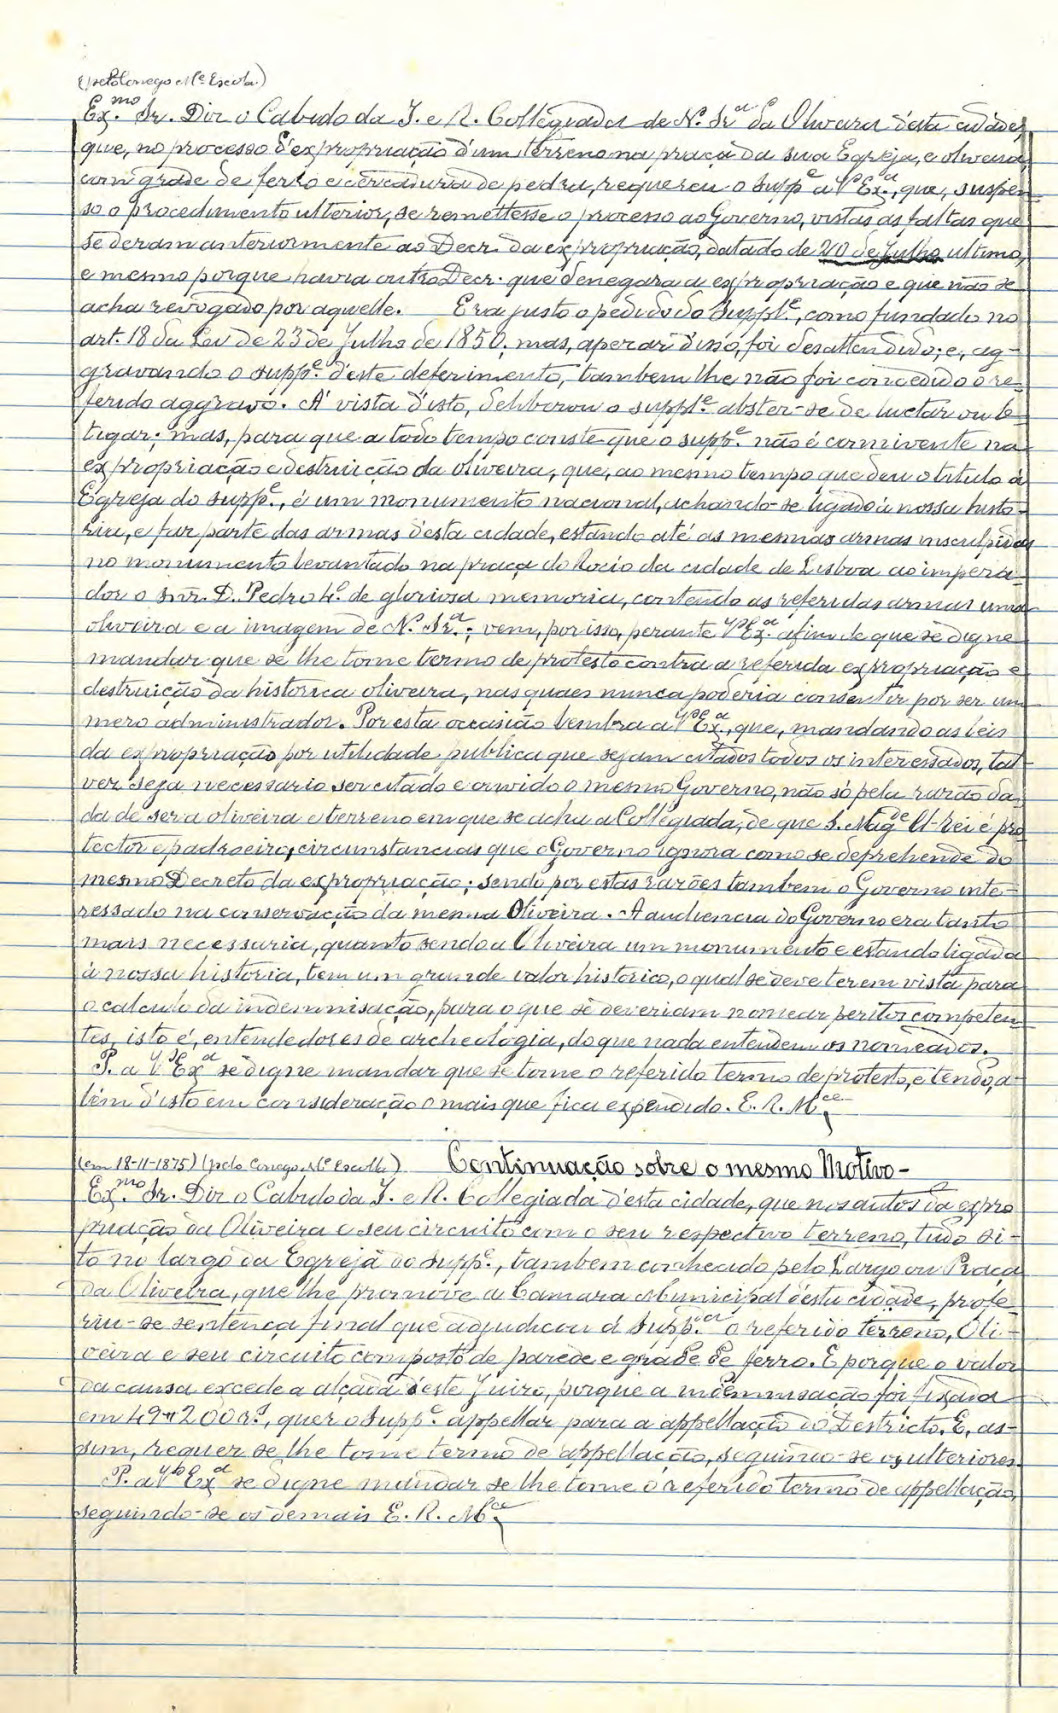 (pelo Conego Me Escola.)
Ex.mo Sr. Diz o Cabido da I. e R. Collegiada de N. Sr.a da Oliveira d'esta cidade,
que, no processo d'expropriação d'um terreno na praça da sua Egreja, e oliveira,
com grade de ferro e cercadura de pedra, requereu o supp.e a V.Ex.a, que, suspen-
so o procedimento ulterior, se remettesse o processo ao Governo, vistas as faltas que
se deram anteriormente ao Decr. da expropriação, datado de 20 de Julho ultimo,
e mesmo porque havia outro Decr. que denegara a expropriação e que não se
acha revogado por aquelle. Era justo o pedido do Suppl.e, como fundado no
art. 18 da Lei de 23 de Julho de 1850; mas, apezar d'isso, foi desattendido; e, ag-
gravando o supp.e d'este deferimento, tambem lhe não foi concedido o re-
ferido aggravo. Á vista d'isto, deliberou o suppl.e abster-se de luctar ou li-
tigar; mas, para que a todo tempo conste que o supp.e não é connivente na
expropriação e destruição da oliveira, que, ao mesmo tempo que deu o titulo á
Egreja do supp.e, é um monumento nacional, achando-se ligado á nossa histo-
ria, e faz parte das armas d'esta cidade, estando até as mesmas armas insculpidas
no monumento levantado na praça do Rocio da cidade de Lisboa ao impera-
dor o snr. D. Pedro 4.º de gloriosa memoria, contendo as referidas armas uma
oliveira e a imagem de N. Sr.a; vem, por isso, perante V.Ex.a afim de que se digne
mandar que se lhe tome termo de protesto contra a referida expropriação e
destruição da historica oliveira, nas quaes nunca poderia consentir por ser um
mero administrador. Por esta occasião lembra a V.Ex.a, que, mandando as leis
da expropriação por utilidade publica que sejam citados todos os interessados, tal-
vez seja necessario ser citado e ouvido o mesmo Governo, não só pela razão da-
da de ser a oliveira e terreno em que se acha a Collegiada, de que S. Mag.de El-Rei é pro
tector e padroeiro, circunstancias que o Governo ignora como se deprehende do
mesmo Decreto da expropriação; sendo por estas razões tambem o Governo inte-
ressado na conservação da mesma Oliveira. A audiencia do Governo era tanto
mais necessaria, quanto sendo a Oliveira um monumento e estando ligada
á nossa historia, tem um grande valor historico, o qual se deve ter em vista para
o calculo da indemnisação, para o que se deveriam nomear peritos competen-
tes, isto é, entendedores de archeologia, do que nada entendem os nomeados.
P. a V.Ex.a se digne mandar que se tome o referido termo de protesto, e tendo, a-
lém d'isto em consideração o mais que fica expendido. E. R. M.ce
(em 18-11-1875) (pelo Conego Me Escolla) Continuação sobre o mesmo Motivo-
Ex.mo Sr. Diz o Cabido da I. e R. Collegiada d'esta cidade, que nos autos da expro
priação da Oliveira e seu circuito com o seu respectivo terreno, tudo si-
to no largo da Egreja do supp.e, tambem conhecido pelo Largo ou Praça
da Oliveira, que lhe promove a Camara Municipal d'esta cidade, profe-
riu-se sentença final que adjudicou á Supp.ca o referido terreno, Oli-
veira e seu circuito composto de parede e grade de ferro. E porque o valor
da causa excede a alçada d'este Juizo, porque a indemnisação foi fixada
em 49$200 r.s, quer o Supp.e appellar para a appellação do Destricto. E, as-
sim, requer se lhe tome termo de appellação, seguindo-se os ulteriores
P. a V.Ex.a se digne mandar se lhe tome o referido termo de appellação,
seguindo-se os demais E. R. M.ce